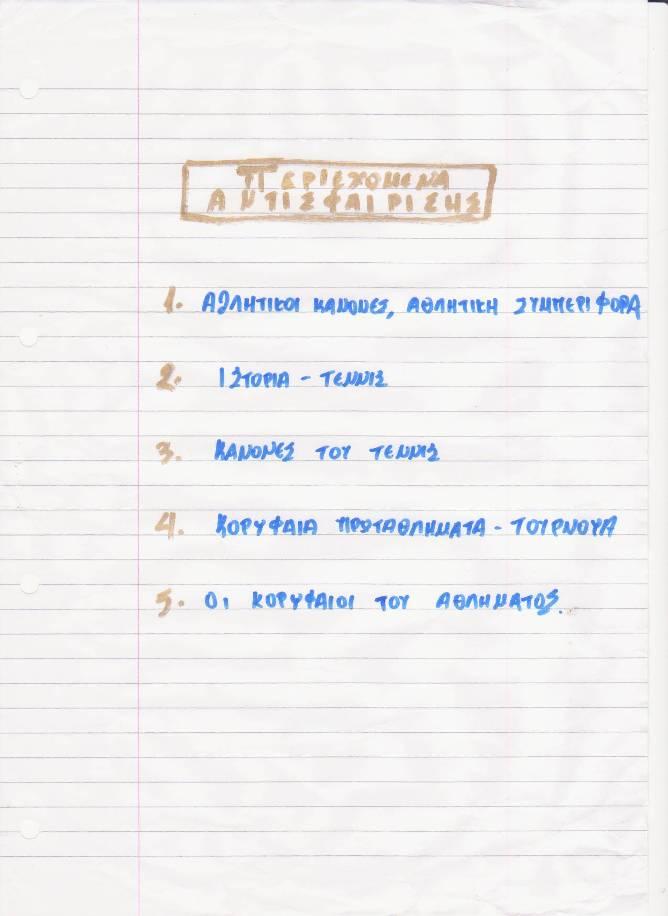 ΠΕΡΙΕΧΟΜΕΝΑ
ΑΝΤΙΣΦΑΙΡΙΣΗΣ
1. ΑΘΛΗΤΙΚΟΙ ΚΑΝΟΝΕΣ, ΑΘΛΗΤΙΚΗ ΣΥΜΠΕΡΙΦΟΡΑ
2. ΙΣΤΟΡΙΑ - ΤΕΝΝΙΣ
3. ΚΑΝΟΝΕΣ ΤΟΥ ΤΕΝΝΙΣ
4. ΚΟΡΥΦΑΙΑ ΠΡΩΤΑΘΛΗΜΑΤΑ - ΤΟΥΡΝΟΥΑ
5. ΟΙ ΚΟΡΥΦΑΙΟΙ ΤΟΥ ΑΘΛΗΜΑΤΟΣ.